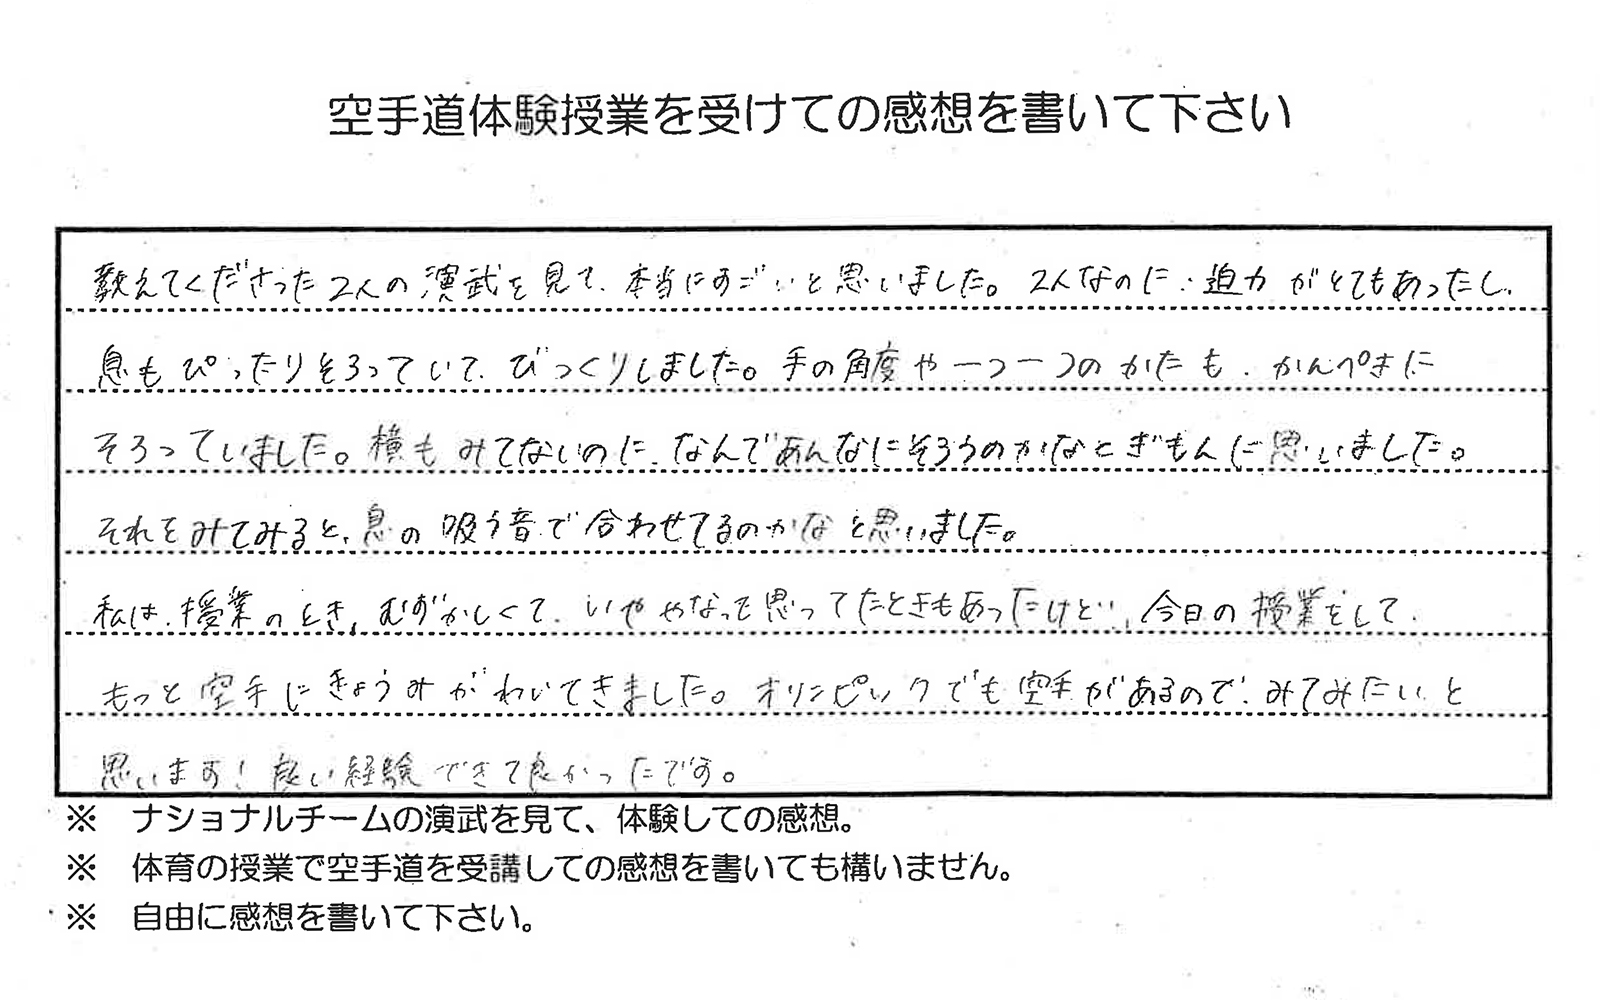 空手道体験授業を受けての感想を書いて下さい
教えてくださった2人の演武を見て、本当にすごいと思いました。2人なのに、迫力がとてもあったし、
息もぴったりそろっていて、びっくりしました。手の角度や一つ一つのかたも、かんぺきに
そろっていました。横もみてないのに、なんであんなにそろうのかなとぎもんに思いました。
それをみてみると、息の吸う音で合わせてるのかなと思いました。
私は、授業のとき、むずかしくて、いややなって思ってたときもあったけど、今日の授業をして、
もっと空手にきょうみがわいてきました。オリンピックでも空手があるので、みてみたいと
思います！良い経験できて良かったです。
※ ナショナルチームの演武を見て、体験しての感想。
※ 体育の授業で空手道を受講しての感想を書いても構いません。
※ 自由に感想を書いて下さい。